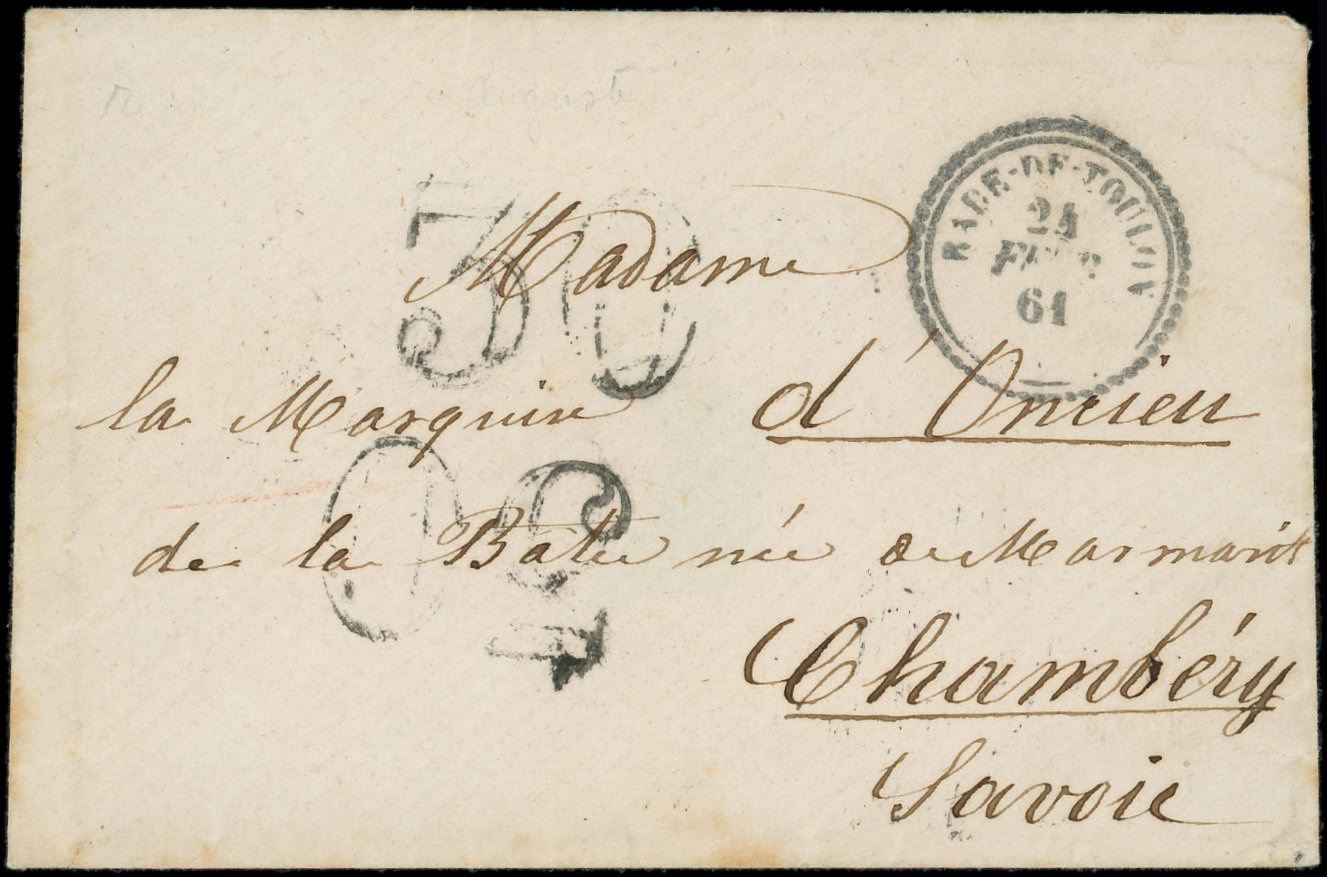 Auguste
RADE-DE-TOULON
24
FEVR
61
30
Madame
la Marquise d'Oncieu
30
de la Batie née de Marmarit
Chambéry
Savoie